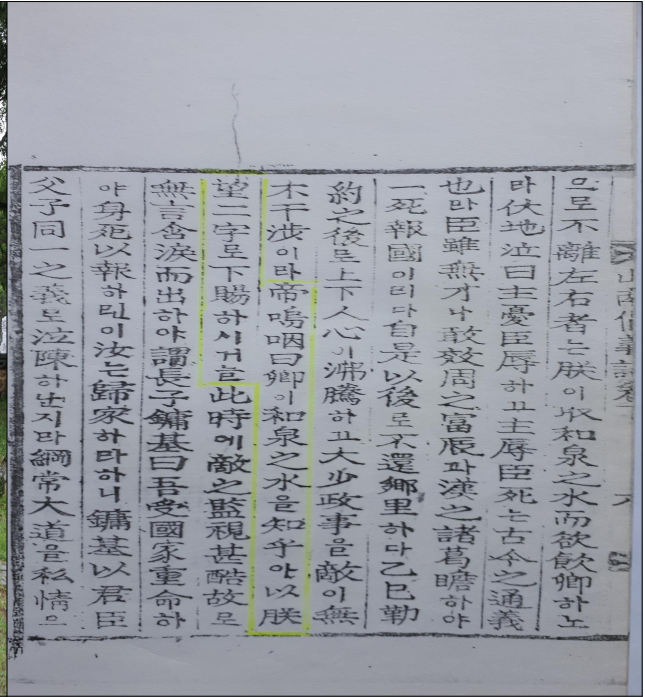 으로不離左右者는朕이以和泉之水而欲飮卿하노
라伏地泣曰主憂臣辱하고主辱臣死는古今之通義
也라臣雖無才나敢效周之富辰과漢之諸葛瞻하야
一死報國이리다自是以後로不還鄕里하다乙巳勒
約之後로上下人心이沸騰하고大少政事을敵이無
不干涉이라帝嗚咽曰卿이和泉之水을知乎아以朕
望二字로下賜하시거늘此時에敵之監視甚酷故로
無言含淚而出하야謂長子鏞基曰吾受國家重命하
야身死以報하린이汝는歸家하라하니鏞基以君臣
父子同一之義로泣陳하난지라綱常大道을私情으
山南倡義誌卷下